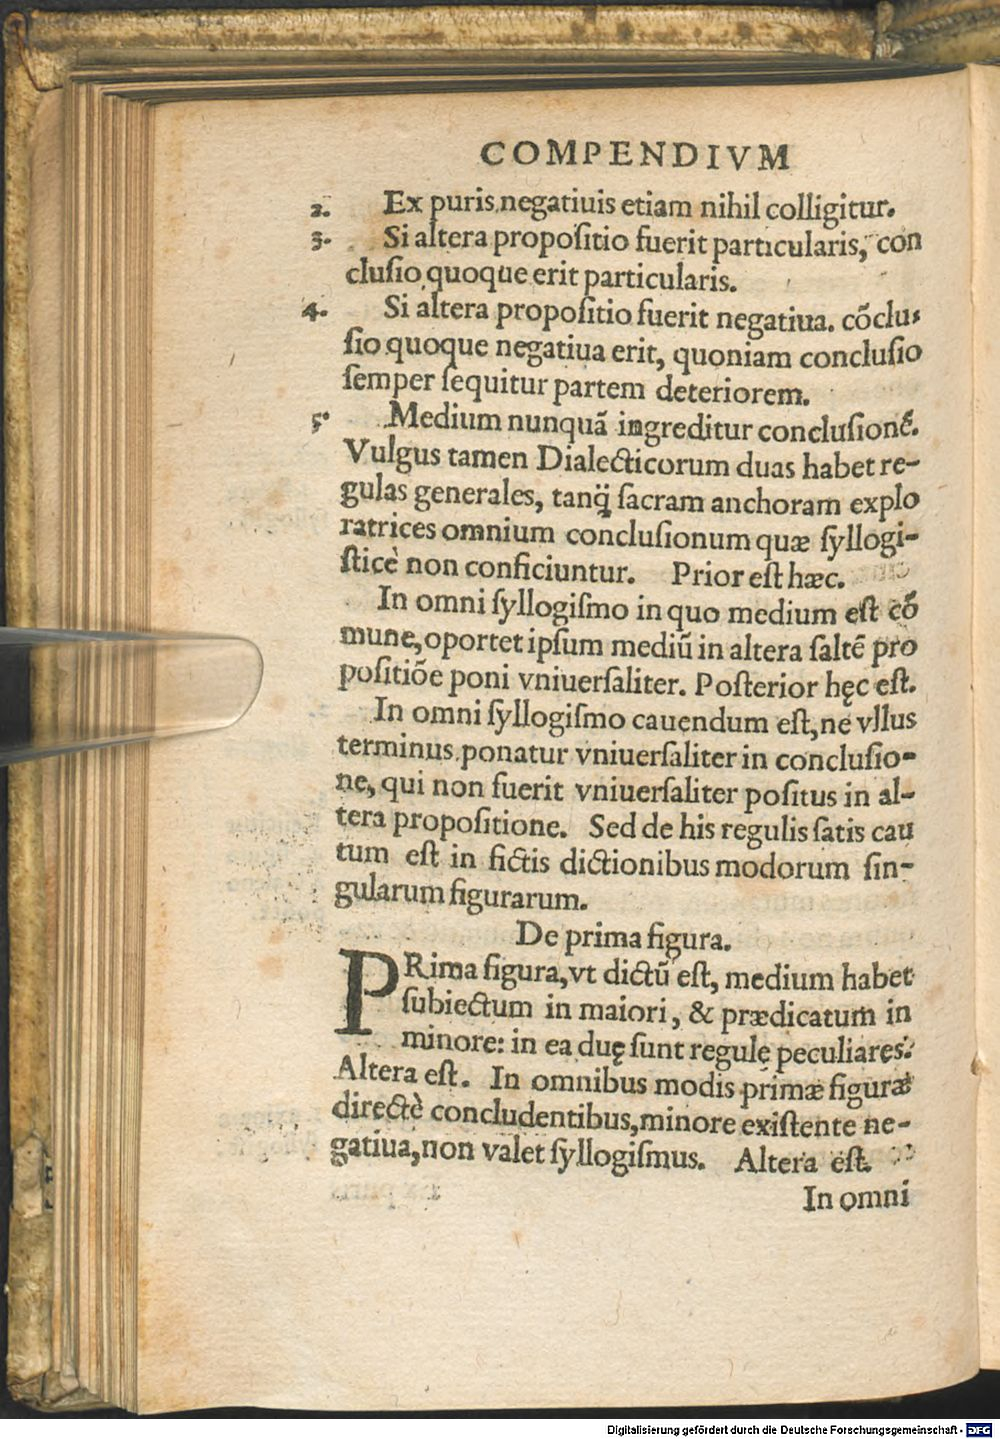 COMPENDIVM
2. Ex puris negatiuis etiam nihil colligitur.
3. Si altera propoſitio fuerit particularis, con
cluſio quoque erit particularis.
4. Si altera propoſitio fuerit negatiua. cõclu-
ſio quoque negatiua erit, quoniam concluſio
ſemper ſequitur partem deteriorem.
5. Medium nunquã ingreditur concluſionẽ.
Vulgus tamen Dialecticorum duas habet re-
gulas generales, tanq̃ ſacram anchoram explo
ratrices omnium concluſionum quæ ſyllogi-
ſticè non conficiuntur. Prior eſt hæc.
In omni ſyllogiſmo in quo medium eſt cõ
mune, oportet ipſum mediũ in altera ſaltẽ pro
poſitiõe poni vniuerſaliter. Poſterior hęc eſt.
In omni ſyllogiſmo cauendum eſt, ne vllus
terminus ponatur vniuerſaliter in concluſio-
ne, qui non fuerit vniuerſaliter poſitus in al-
tera propoſitione. Sed de his regulis ſatis cau
tum eſt in fictis dictionibus modorum ſin-
gularum figurarum.
De prima figura.
PRima figura, vt dictũ eſt, medium habet
ſubiectum in maiori, & prædicatum in
minore: in ea duę ſunt regulę peculiares.
Altera eſt. In omnibus modis primæ figuræ
directè concludentibus, minore exiſtente ne-
gatiua, non valet ſyllogiſmus. Altera eſt.
In omni
Digitalisierung gefördert durch die Deutsche Forschungsgemeinschaft - DFG